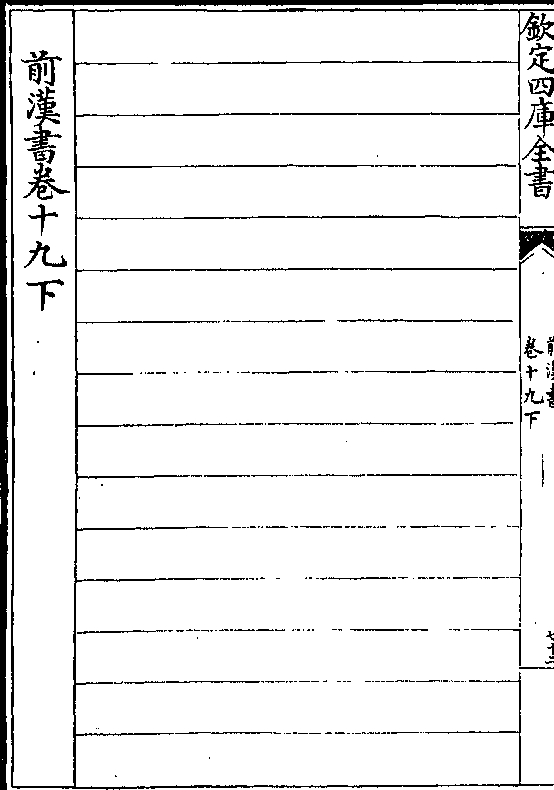 欽定四庫全書
前漢書
卷十九下
前漢書卷十九下